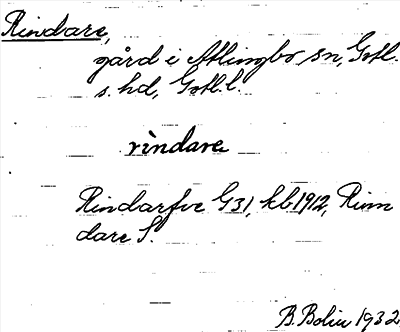 Rindare,
gård i Atlingbo sn, Gotl.
s. hd, Gotl.l.
rìndare
Rindarfve G31, kb 1912, Rinn
dare S.
B. Bolin 1932